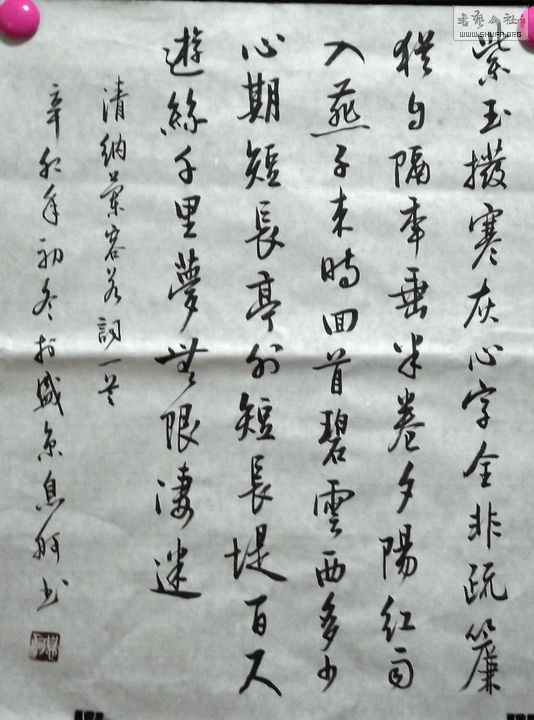 書藝公社
WWW.SHUFA.ORG
紫玉撥寒灰心字全非疏簾
猶自隔年垂半卷夕陽紅雨
入燕子來時回首碧雲西多少
心期短長亭外短長堤百尺
遊絲千里夢無限淒迷
清納蘭容若詞一首
辛卯年初冬於盛京息書